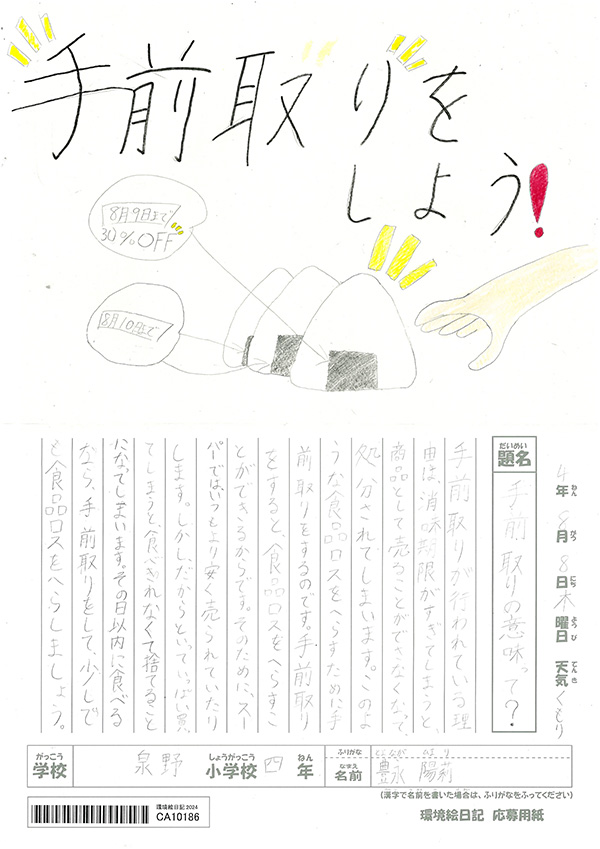 手前取りを
しよう!
8月9日まで
30%OFF
8月10日まで
4年 8月 8日 木曜日 天気 くもり
ねん がつ にち ようび てんき
だいめい
題名
手前取りの意味って?
手前取りが行われている理
由は、消味期限がすぎてしまうと、
商品として売ることができなくなって、
処分されてしまいます。このよ
うな食品ロスをへらすために手
前取りをするのです。手前取り
をすると、食品ロスをへらすこ
とができるからです。そのために、スー
パーではいつもより安く売られていたり
します。しかし、だからといっていっぱい買っ
てしまうと、食べきれなくて捨てること
になってしまいます。その日以内に食べる
なら、手前取りをして、少しで
も食品ロスをへらしましょう。
がっこう
学校
泉野 小学校 四年
しょうがっこう ねん
ふりがな
とよなが ひまり
なまえ
名前
豊永 陽莉
(漢字で名前を書いた場合は、ふりがなをふってください)
環境絵日記 2024
CA10186
環境絵日記 応募用紙